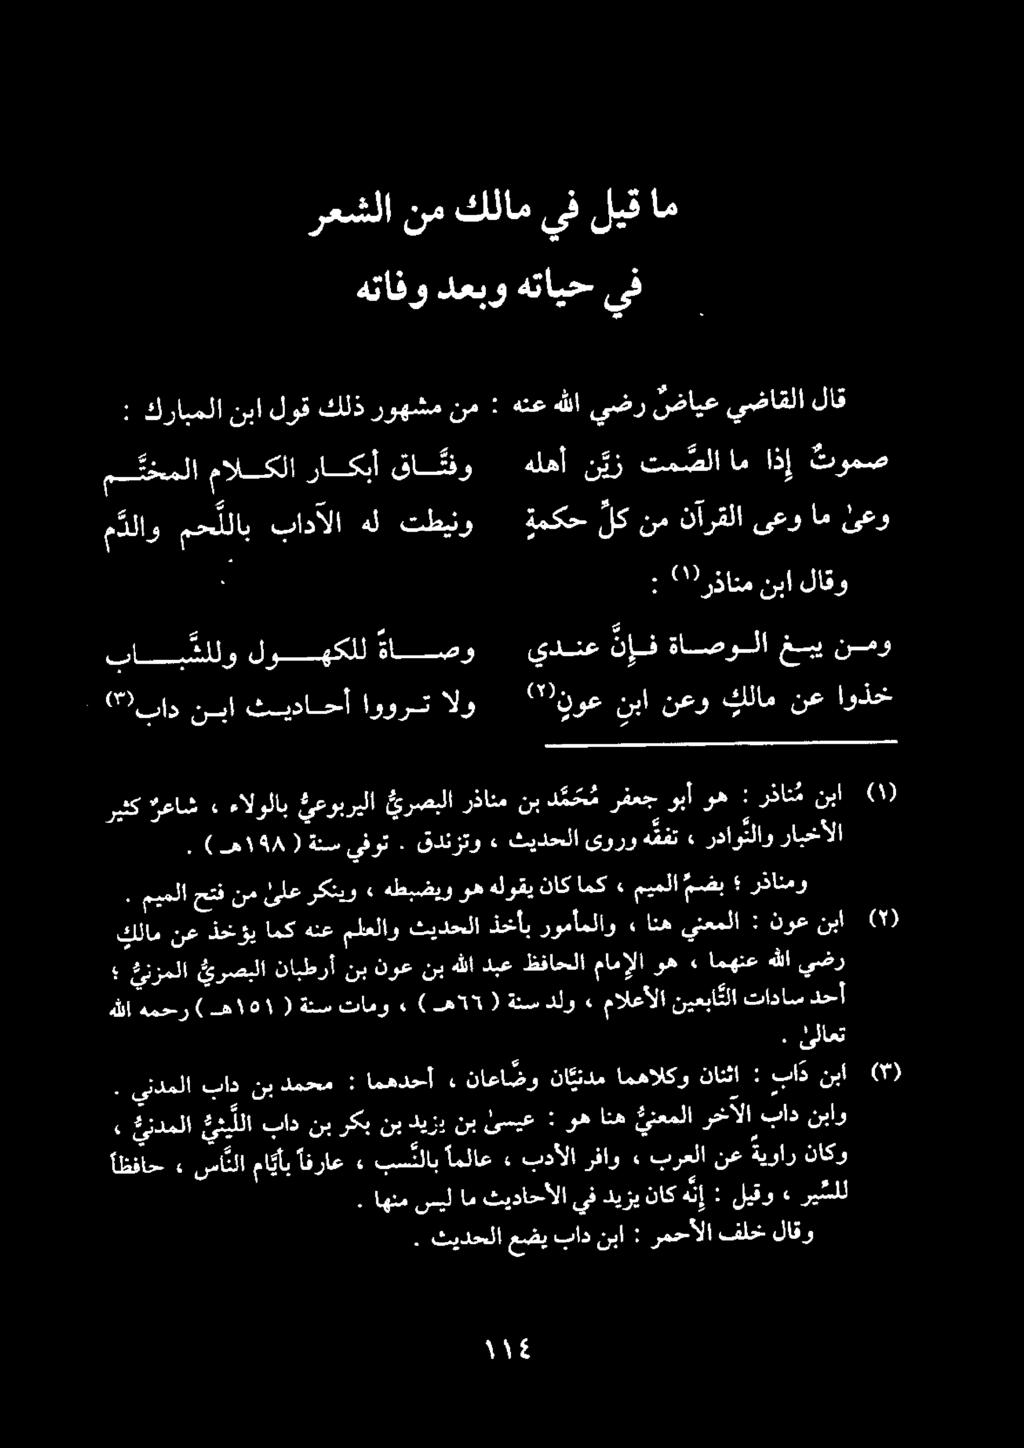 ما قيل في مالك من الشعر
في حياته وبعد وفاته
قال القاضي عياضٌ رضي الله عنه : من مشهور ذلك قول ابن المبارك :
صموتٌ إذا ما الصَّمت زيَّن أهله وفتَّـاق أبكـار الكـلام المختَّـم
وعىٰ ما وعى القرآن من كلِّ حكمةٍ ونيطت له الآداب باللَّحم والدَّم
وقال ابن مناذر(١) :
ومـن يبـغ الـوصـاة فـإنَّ عنـدي وصـاةً للكهـول وللشَّبـاب
خذوا عن مالكٍ وعن ابنِ عونٍ(٢) ولا تـرووا أحـاديـث ابـن داب(٣)
(١) ابن مُناذر : هو أبو جعفر مُحَمَّد بن مناذر البصريُّ اليربوعيُّ بالولاء ، شاعرٌ كثير
الأخبار والنَّوادر ، تفقَّه وروى الحديث ، وتزندق . توفي سنة ( ١٩٨هـ ) .
ومناذر ؛ بضمِّ الميم ، كما كان يقوله هو ويضبطه ، وينكر علىٰ من فتح الميم .
(٢) ابن عون : المعني هنا ، والمأمور بأخذ الحديث والعلم عنه كما يؤخذ عن مالكٍ
رضي الله عنهما ، هو الإمام الحافظ عبد الله بن عون بن أرطبان البصريُّ المزنيُّ ؛
أحد سادات التَّابعين الأعلام ، ولد سنة ( ٦٦هـ ) ، ومات سنة ( ١٥١هـ ) رحمه الله
تعالىٰ .
(٣) ابن دَابٍ : اثنان وكلاهما مدنيَّان وضَّاعان ، أحدهما : محمد بن داب المدني .
وابن داب الآخر المعنيُّ هنا هو : عيسىٰ بن يزيد بن بكر بن داب اللَّيثيُّ المدنيُّ ،
وكان راويةً عن العرب ، وافر الأدب ، عالماً بالنَّسب ، عارفاً بأيَّام النَّاس ، حافظاً
للسِّير ، وقيل : إنَّه كان يزيد في الأحاديث ما ليس منها .
وقال خلف الأحمر : ابن داب يضع الحديث .
١١٤